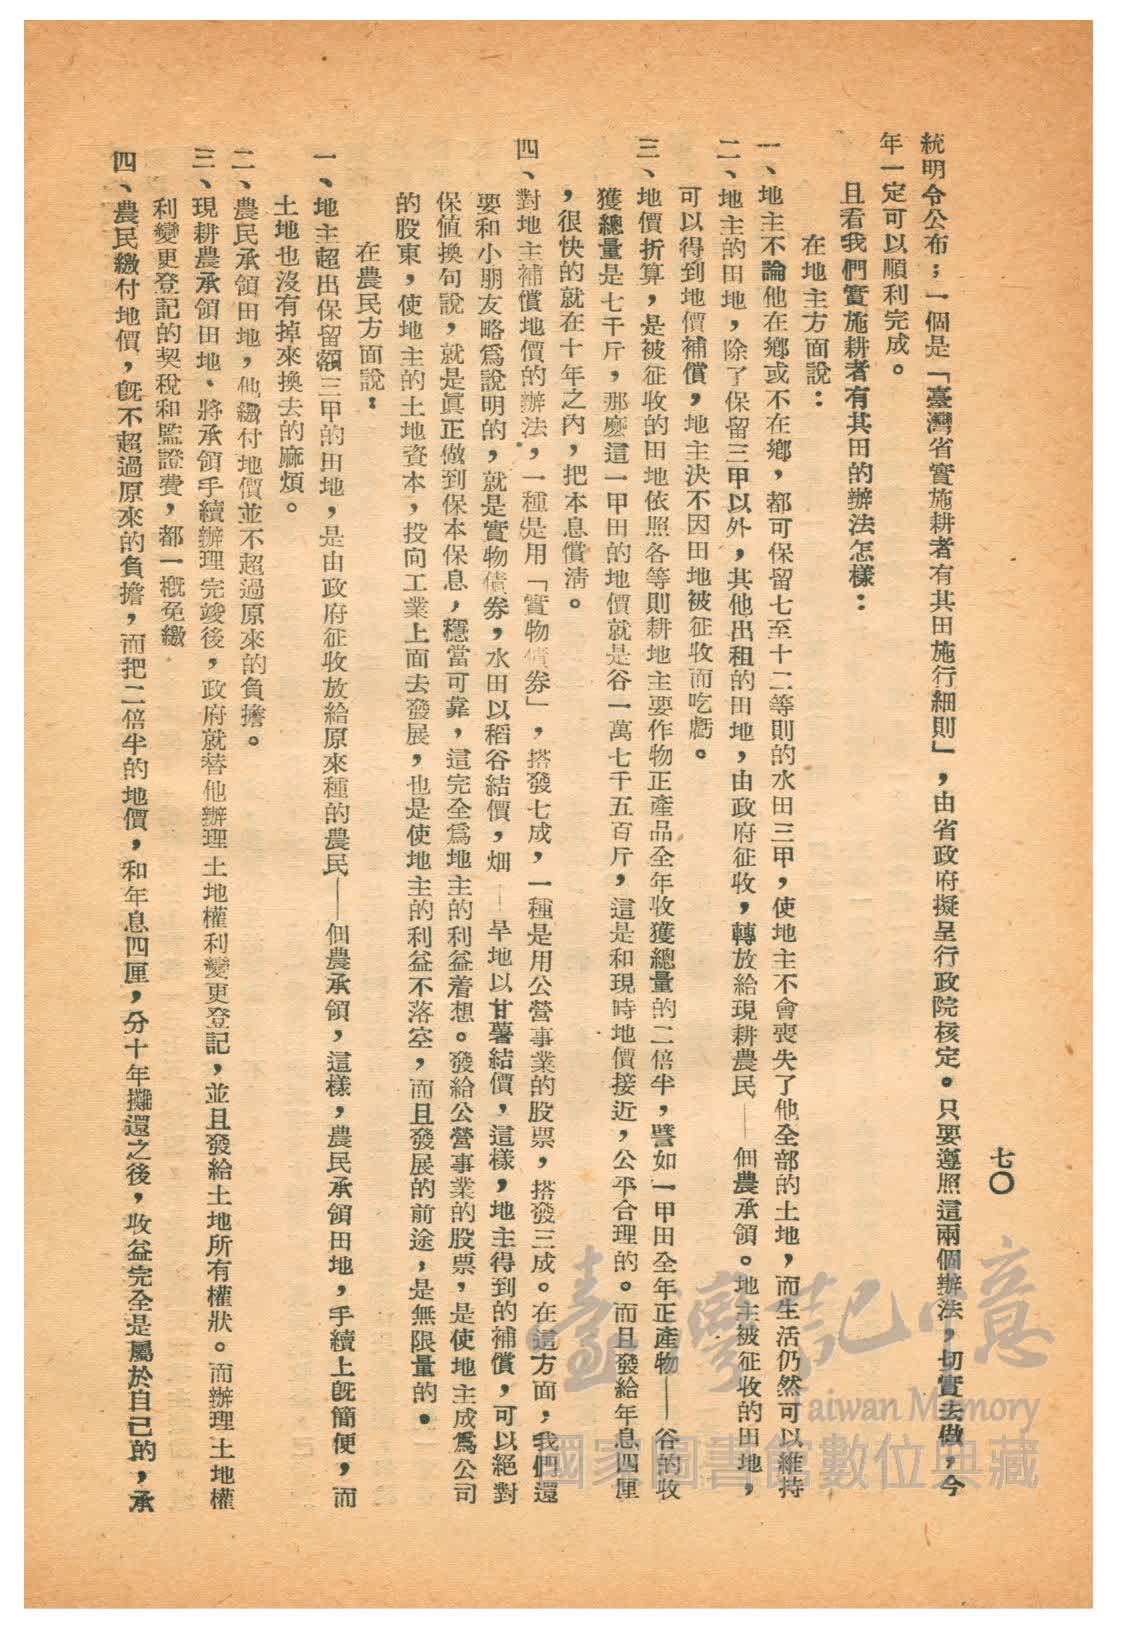 七〇
統明令公布；一個是「臺灣省實施耕者有其田施行細則」，由省政府擬呈行政院核定。只要遵照這兩個辦法，切實去做，今
年一定可以順利完成。
且看我們實施耕者有其田的辦法怎樣：
在地主方面說：
一、地主不論他在鄉或不在鄉，都可保留七至十二等則的水田三甲，使地主不會喪失了他全部的土地，而生活仍然可以維持
二、地主的田地，除了保留三甲以外，其他出租的田地，由政府征收，轉放給現耕農民——佃農承領。地主被征收的田地，
可以得到地價補償，地主決不因田地被征收而吃虧。
三、地價折算，是被征收的田地依照各等則耕地主要作物正產品全年收獲總量的二倍半，譬如一甲田全年正產物——谷的收
獲總量是七千斤，那麼這一甲田的地價就是谷一萬七千五百斤，這是和現時地價接近，公平合理的。而且發給年息四厘
，很快的就在十年之內，把本息償清。
四、對地主補償地價的辦法，一種是用「實物債券」，搭發七成，一種是用公營事業的股票，搭發三成。在這方面，我們還
要和小朋友略爲說明的，就是實物債券，水田以稻谷結價，畑——旱地以甘薯結價，這樣，地主得到的補償，可以絕對
保值換句說，就是眞正做到保本保息，穩當可靠，這完全爲地主的利益着想。發給公營事業的股票，是使地主成爲公司
的股東，使地主的土地資本，投向工業上面去發展，也是使地主的利益不落空，而且發展的前途，是無限量的。
在農民方面說：
一、地主超出保留額三甲的田地，是由政府征收放給原來種的農民——佃農承領，這樣，農民承領田地，手續上旣簡便，而
土地也沒有掉來換去的麻煩。
二、農民承領田地，他繳付地價並不超過原來的負擔。
三、現耕農承領田地、將承領手續辦理完竣後，政府就替他辦理土地權利變更登記，並且發給土地所有權狀。而辦理土地權
利變更登記的契稅和監證費，都一槪免繳
四、農民繳付地價，旣不超過原來的負擔，而把二倍半的地價，和年息四厘，分十年攤還之後，收益完全是屬於自己的，承
臺灣記憶
Taiwan Memory
國家圖書館數位典藏